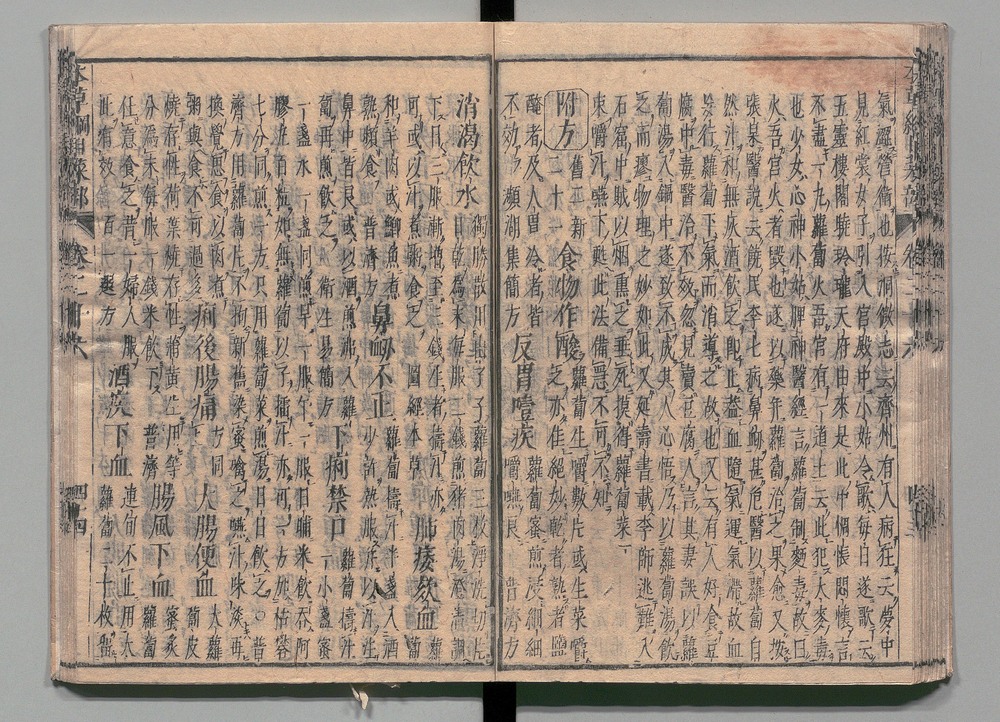 氣澀營衞也按洞微志云齊州有人病狂云夢中
見紅裳女子引入宮殿中小姑令歌每日遂歌云
五靈樓閣曉玲瓏天府由來是此中惆悵悶懷言
不盡一丸蘿蔔火吾宮有一道士云此犯大麥毒
也少女心神小姑脾神醫經言蘿蔔制麪毒故曰
火吾宮火者毀也遂以藥并蘿蔔治之果愈又按
張杲醫說云饒民李七病鼻衂甚危醫以蘿蔔自
然汁和無灰酒飮之即止蓋血隨氣運氣滯故血
妄行蘿蔔下氣而酒導之故也又云有人好食豆
腐中毒醫治不效忽見賣豆腐人言其妻誤以蘿
蔔湯入鍋中遂致不成其人心悟乃以蘿蔔湯飮
之而瘳物理之妙如此又延壽書載李師逃難入
石窟中賊以烟熏之垂死摸得蘿蔔菜一
束嚼汁嚥下即甦此法備急不可不知
附方 舊二新二十一 食物作酸 蘿蔔生嚼數片或生菜嚼之亦佳絕妙乾者熟者鹽
醃者及人胃冷者皆不效 瀕湖集簡方 反胃噎疾 蘿蔔蜜煎浸細細嚼嚥良 普濟方
消渴飮水 獨勝散用出了子蘿蔔三枚淨洗切片日乾爲末每服二錢煎猪肉湯澄淸調
下日三服漸增至三錢生者擣汁亦可或以汁煮粥食之 圖經本草 肺痿欬血 蘿蔔
和羊肉或鯽魚煮熟頻食 普濟方 鼻衂不止 蘿蔔擣汁半盞入酒少許熱服并以汁注
鼻中皆良或以酒煎沸入蘿蔔再煎飮之 衞生易簡方 下痢禁口 蘿蔔擣汁一小盞蜜
一盞水一盞同煎早一服午一服日晡米飮呑阿膠丸百粒如無蘿蔔以子擂汁亦可一方加枯礬
七分同煎一方只用蘿蔔菜煎湯日日飮之○普濟方用蘿蔔片不拘新舊染蜜噙之嚥汁味淡再
換覺思食以肉煮粥與食不可過多 痢後腸痛 方同上 大腸便血 大蘿蔔皮
燒存性荷葉燒存性蒲黃生用等分爲末每服一錢米飮下 普濟 腸風下血 蜜炙蘿蔔
任意食之昔一婦人服此有效 百一選方 酒疾下血 連旬不止用大蘿蔔二十枚留